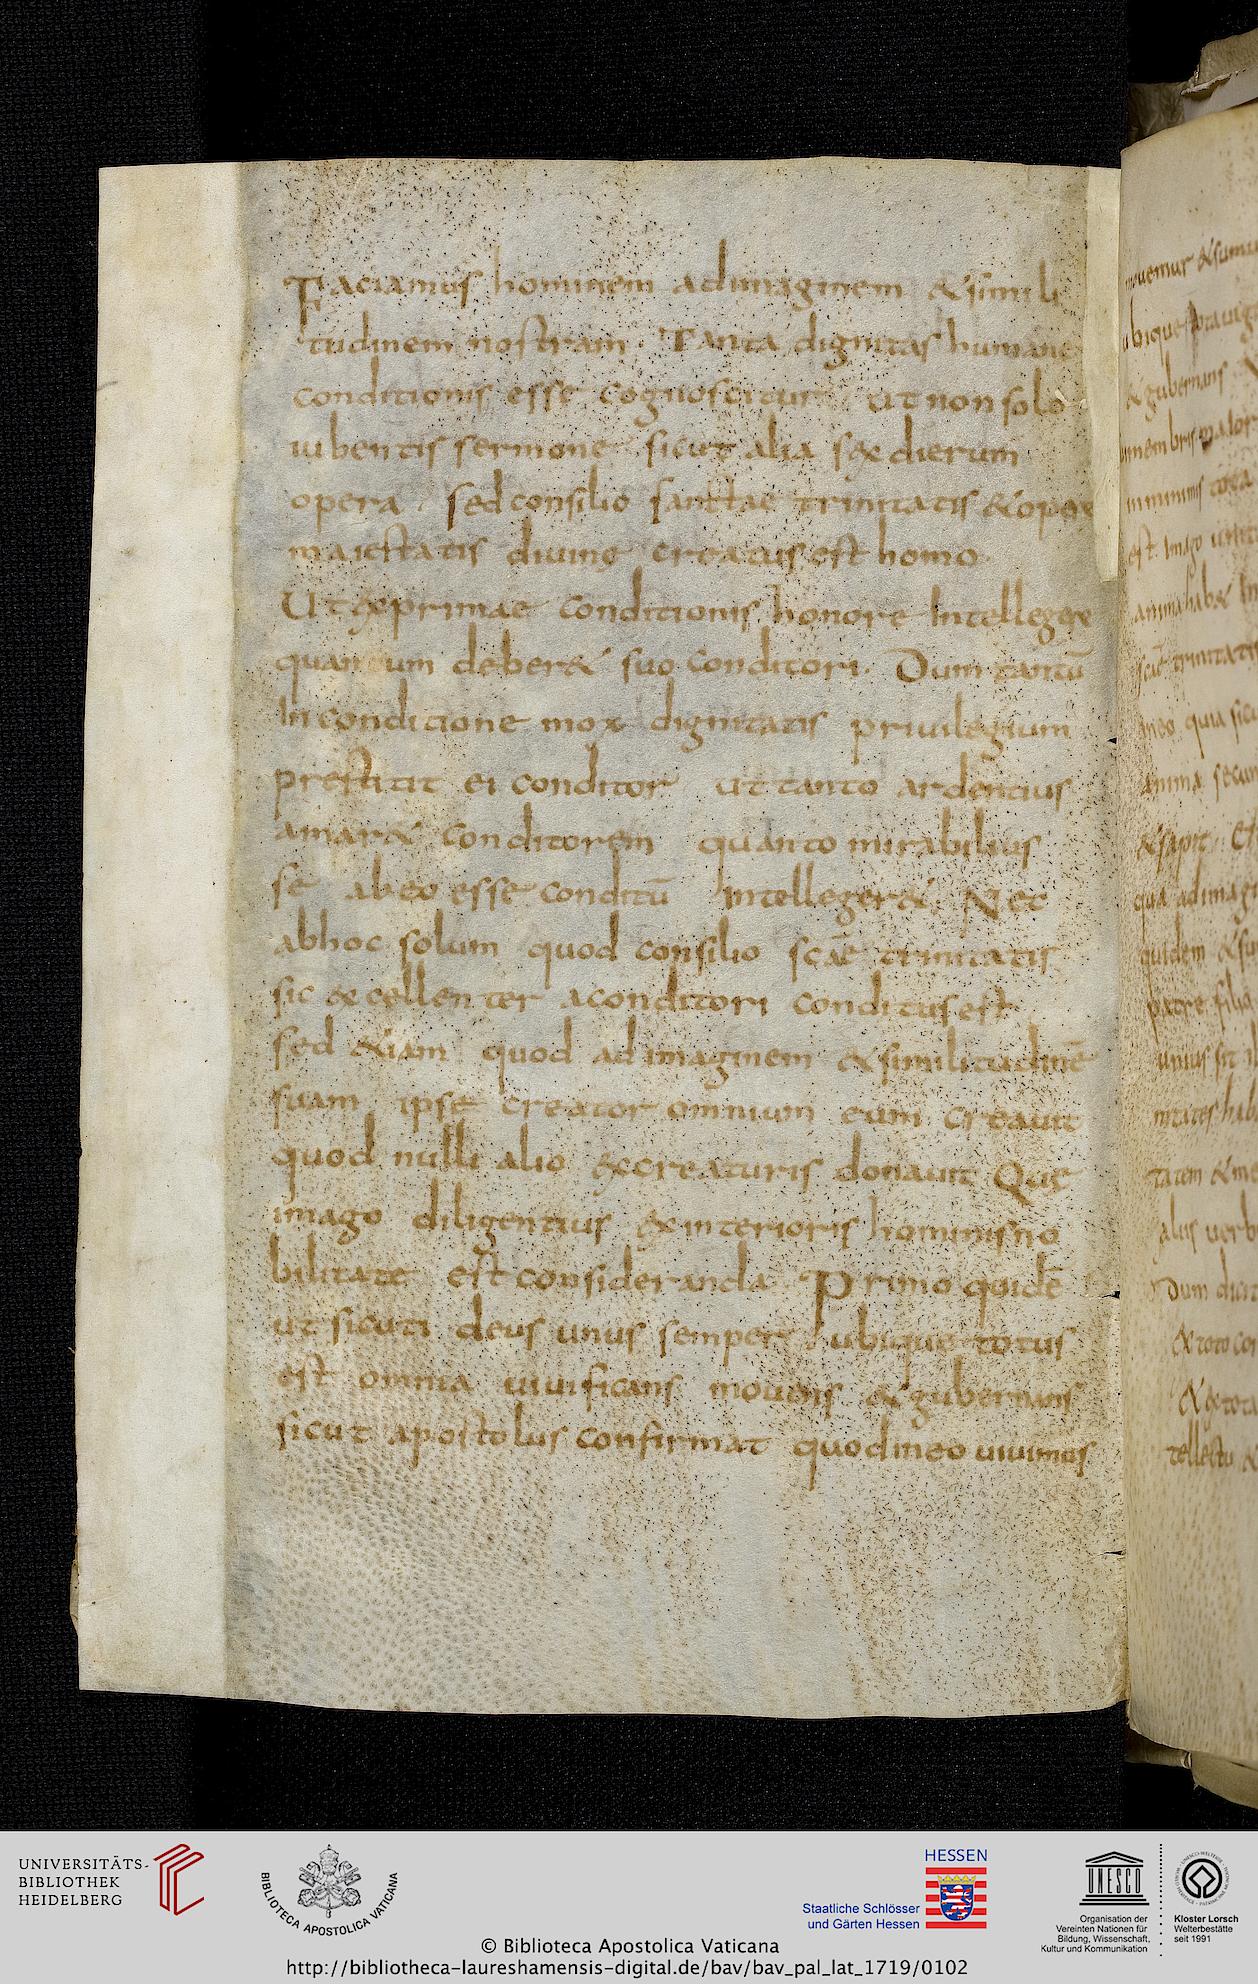 Faciamus hominem adimaginem &simili
tudinem nostram. Tanta dignitas humane
conditionis esse cognoscitur ut non solo
iubentis sermone sicut alia sex dierum
opera. sed consilio sanctae trinitatis &opere
maiestatis divine creatus est homo.
Ut exprimae conditionis honore Intellegere
quantum deber& suo conditori. Dum tantū
In conditione mox dignitatis privilegium
prestitit ei conditor ut tanto ardentius
amar& conditorem quanto mirabilius
se ab eo esse conditū Intelleger&. Nec
abhoc solum quod consilio scāe trinitatis
sic excellenter aconditori conditus est
sed &iam quod adimaginem &similitudinē
suam ipse creator omnium eum creavit
quod nulli alio excreaturis donavit Quę
imago diligentius exinterioris hominis no
bilitate est consideranda. Primo quidē
ut sicuti deus unus semper ubique totus
est omnia vivificans movens & gubernans
sicut apostolus confirmat quodineo vivimus
UNIVERSITÄTS-
BIBLIOTHEK
HEIDELBERG
BIBLIOTECA APOSTOLICA VATICANA
HESSEN
Staatliche Schlösser
und Gärten Hessen
UNESCO
Organisation der
Vereinten Nationen für
Bildung, Wissenschaft,
Kultur und Kommunikation
Kloster Lorsch
Welterbestätte
seit 1991
© Biblioteca Apostolica Vaticana
http://bibliotheca-laureshamensis-digital.de/bav/bav_pal_lat_1719/0102